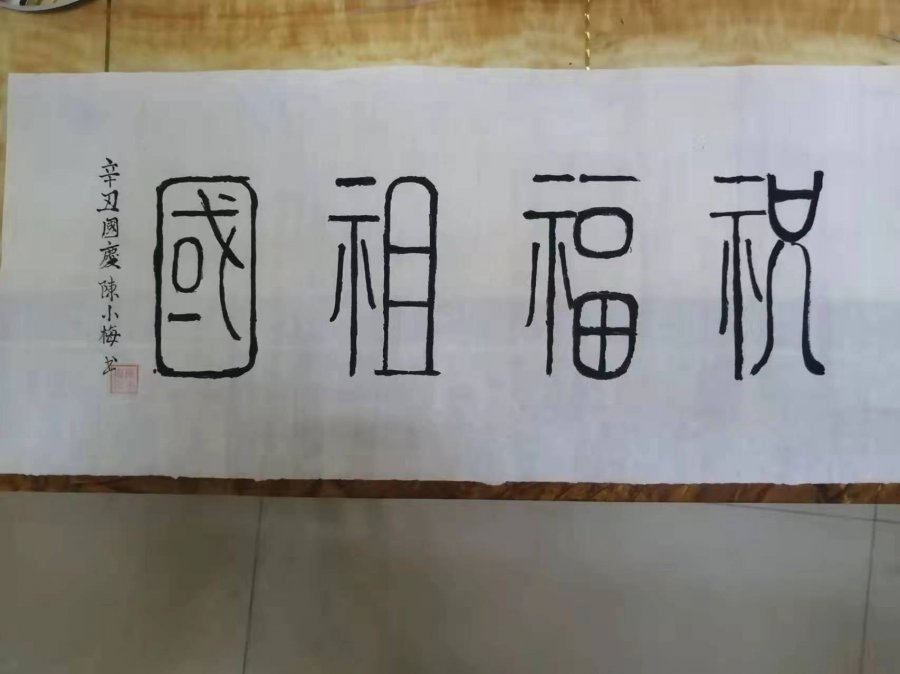 祝福祖國
辛丑國慶陳小梅书